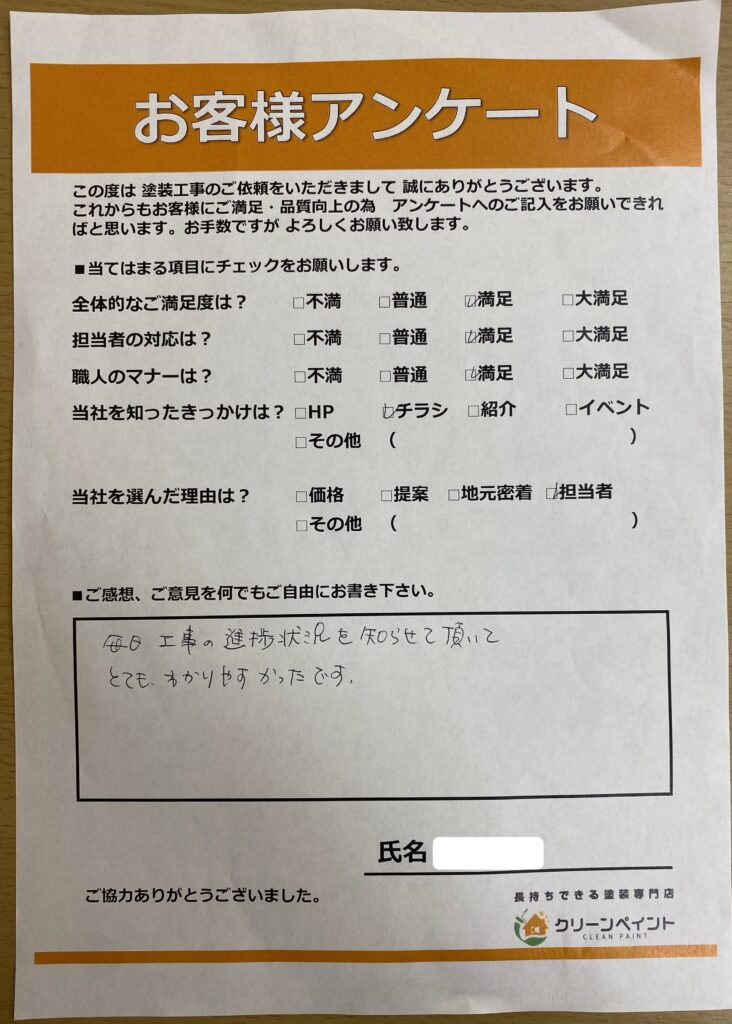 お客様アンケート
この度は 塗装工事のご依頼をいただきまして 誠にありがとうございます。
これからもお客様にご満足・品質向上の為　アンケートへのご記入をお願いできれ
ばと思います。お手数ですが よろしくお願い致します。
■当てはまる項目にチェックをお願いします。
全体的なご満足度は？ □不満 □普通 ☑満足 □大満足
担当者の対応は？ □不満 □普通 ☑満足 □大満足
職人のマナーは？ □不満 □普通 ☑満足 □大満足
当社を知ったきっかけは？ □HP ☑チラシ □紹介 □イベント
□その他 （ ）
当社を選んだ理由は？ □価格 □提案 □地元密着 ☑担当者
□その他 （ ）
■ご感想、ご意見を何でもご自由にお書き下さい。
毎日 工事の進捗状況を知らせて頂いて
とても、わかりやすかったです。
氏名
ご協力ありがとうございました。
長持ちできる塗装専門店
クリーンペイント
CLEAN PAINT